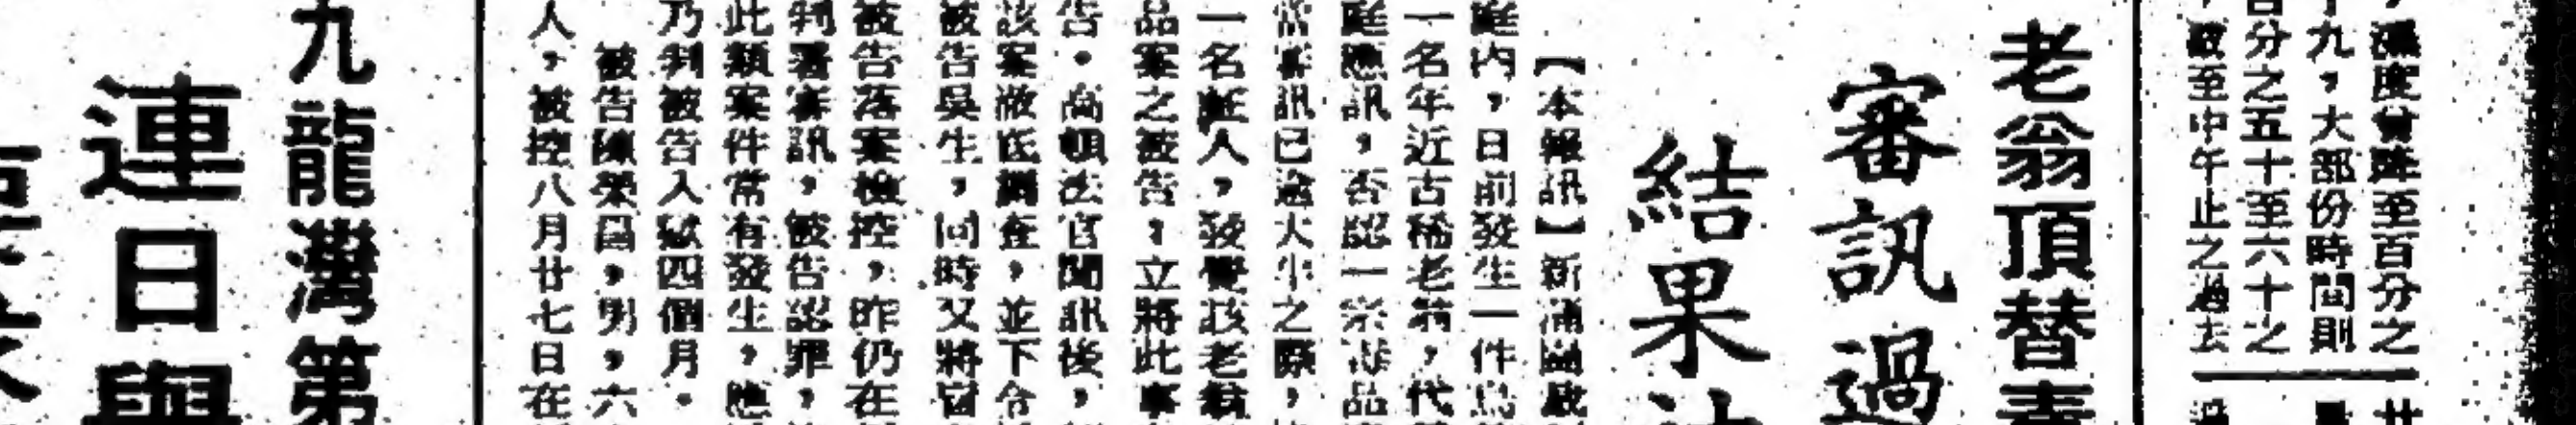 濕度曾降至百分之
十九，大部份時間則
百分之五十至六十之
，截至中午止之過去
老翁頂替毒
審訊過
結果
【本報訊】新蒲崗裁
庭内，日前發生一件烏
一名年近古稀老翁，代
庭應訊，否認一宗毒品
當審訊已逾大半之際，
一名証人，發覺該老翁
品案之被告，立將此事
告。高頓法官聞訊後，
該案徹底調查，並下令
被告吳生，同時又將
被告落案檢控，昨仍在
判署審訊，被告認罪，
此類案件常有發生，應
乃判被告入獄四個月。
被告陳榮昌，男，六
人，被控八月廿七日在
九龍灣第
連日與